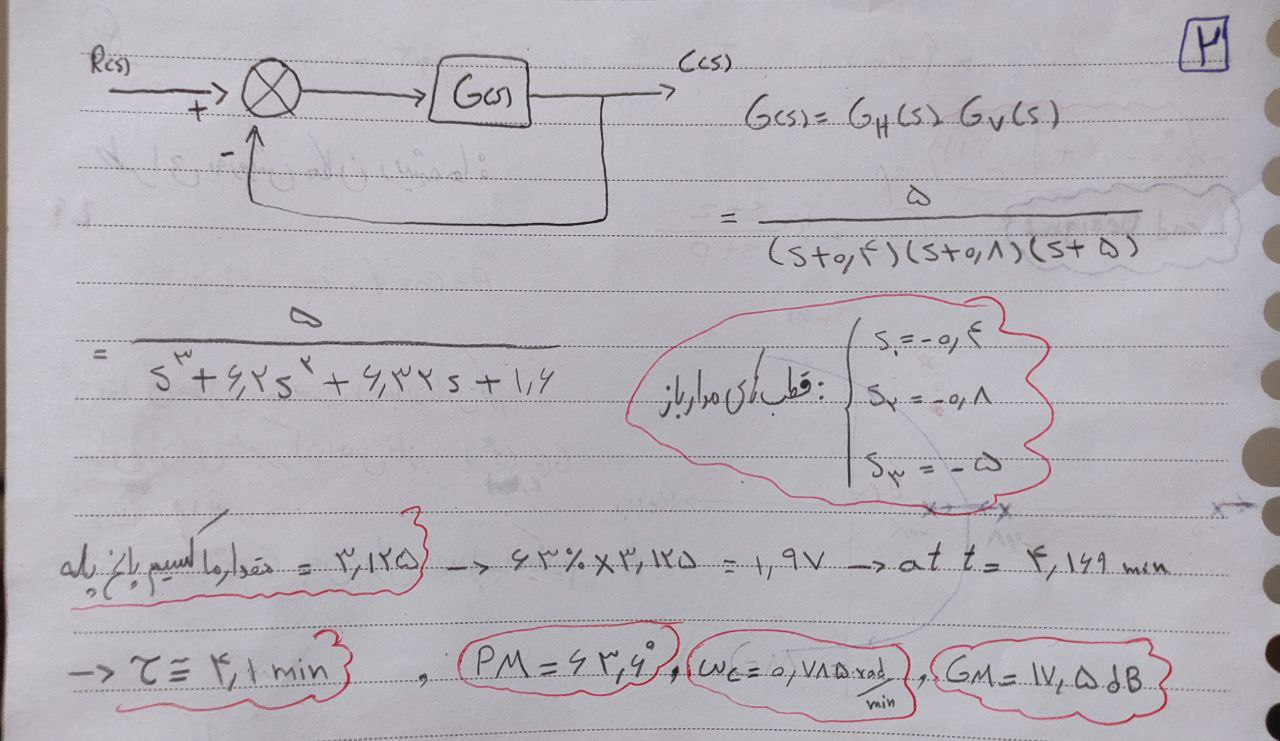 ۲
R(s) + - G(s) C(s)
G(s) = G_H(s) G_V(s)
= ۵ / (s+۰,۴)(s+۰,۸)(s+۵)
= ۵ / s^۳ + ۶,۲s^۲ + ۶,۳۲s + ۱,۶
قطب های مدار باز :
s۱ = -۰,۴
s۲ = -۰,۸
s۳ = -۵
مقدار ماکسیم پاسخ پله = ۳,۱۲۵ → ۶۳% × ۳,۱۲۵ = ۱,۹۷ → at t = ۴,۱۴۹ min
→ τ ≡ ۴,۱ min , PM = ۶۳,۶° , ωc = ۰,۷۸۵ rad/min , GM = ۱۷,۵ dB